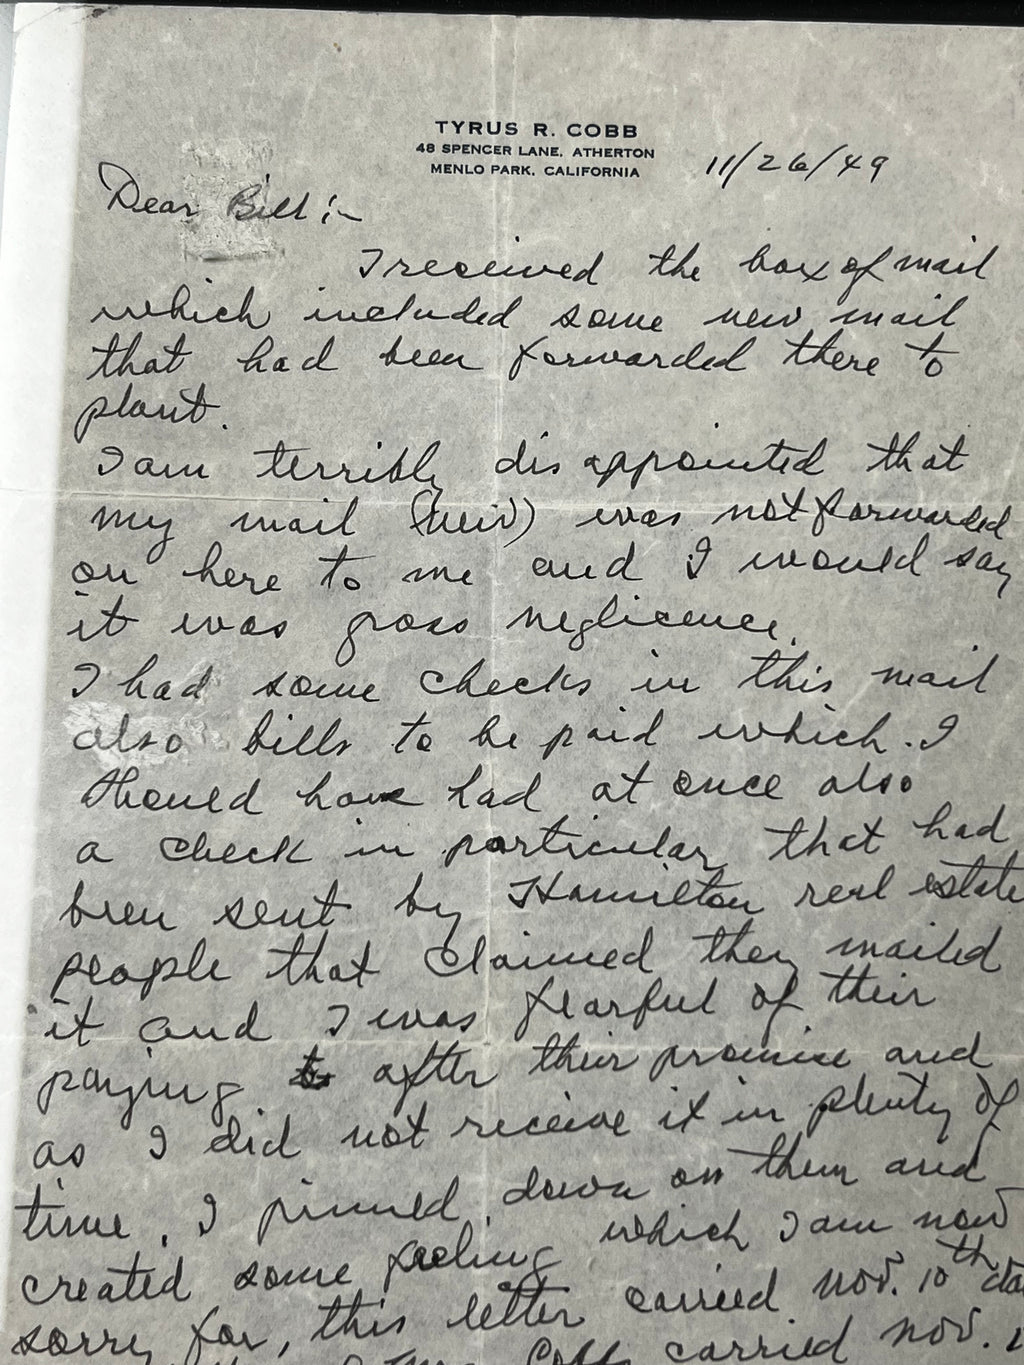 TYRUS R. COBB
48 SPENCER LANE, ATHERTON
MENLO PARK, CALIFORNIA
11/26/49
Dear Bill :-
I received the box of mail
which included some new mail
that had been forwarded there to
plant.
I am terribly disappointed that
my mail (new) was not forwarded
on here to me and I would say
it was gross neglicence.
I had some checks in this mail
also bills to be paid which I
should have had at once also
a check in particular that had
been sent by Hamilton real estate
people that claimed they mailed
it and I was fearful of their
paying after their promise and
as I did not receive it in plenty of
time, I pinned down on them and
created some feeling which I am now
sorry for, this letter carried Nov. 10th
carried Nov.